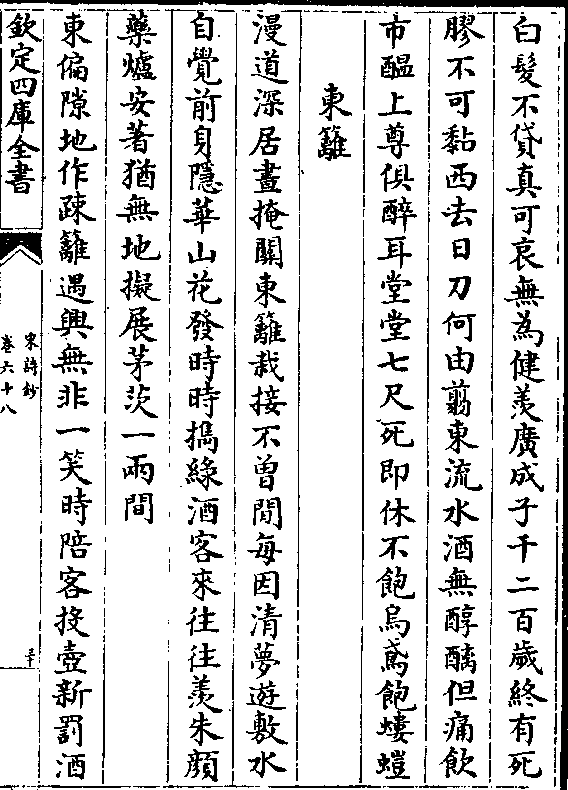 白髮不貸真可哀無為健羨廣成子千二百歲終有死
膠不可黏西去日刀何由翦東流水酒無醇醨但痛飲
市醖上尊俱醉耳堂堂七尺死即休不飽烏鳶飽螻螘
東籬
漫道深居晝掩關東籬栽接不曾閒每因清夢遊敷水
自覺前身隱華山花發時時搗綠酒客來往往羨朱顔
藥爐安著猶無地擬展茅茨一兩間
東偏隙地作疎籬遇興無非一笑時陪客投壺新罰酒
欽定四庫全書
宋詩鈔
卷六十八
三十